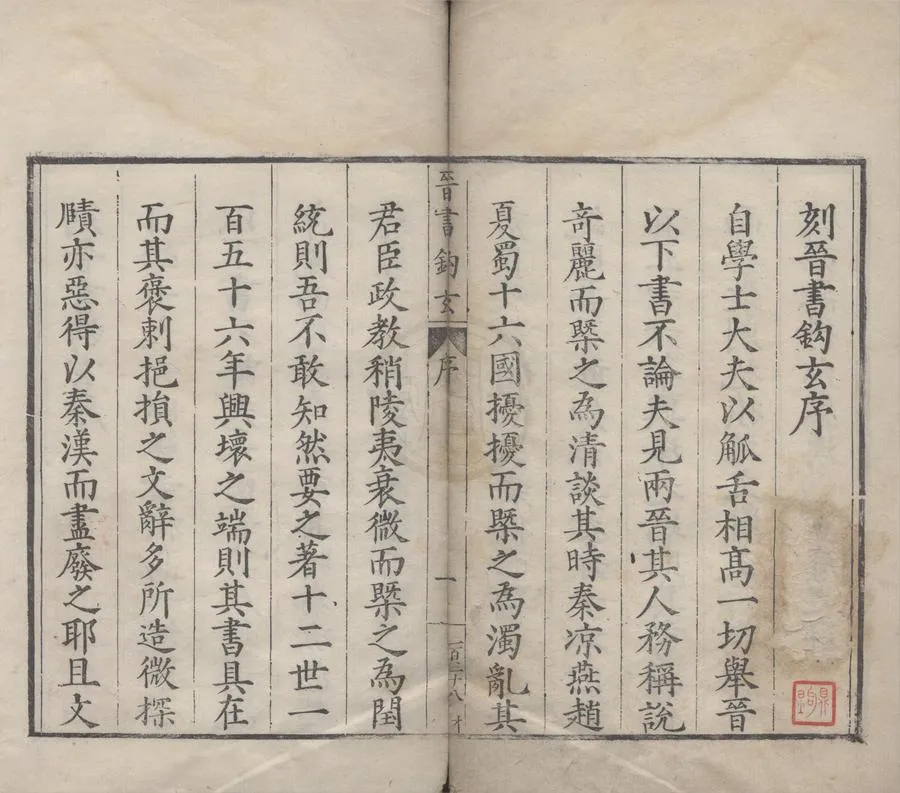 刻晉書鈎玄序
自學士大夫以觚舌相高一切舉晉
以下書不論夫見兩晉其人務稱說
竒麗而槩之為清談其時秦凉燕趙
夏蜀十六國擾擾而槩之為濁亂其
晉書鈎玄
序
一
一百三十八
君臣政教稍陵夷衰微而槩之為閏
統則吾不敢知然要之著十二世一
百五十六年興壞之端則其書具在
而其褒刺挹損之文辭多所造微探
賾亦惡得以秦漢而盡廢之耶且文